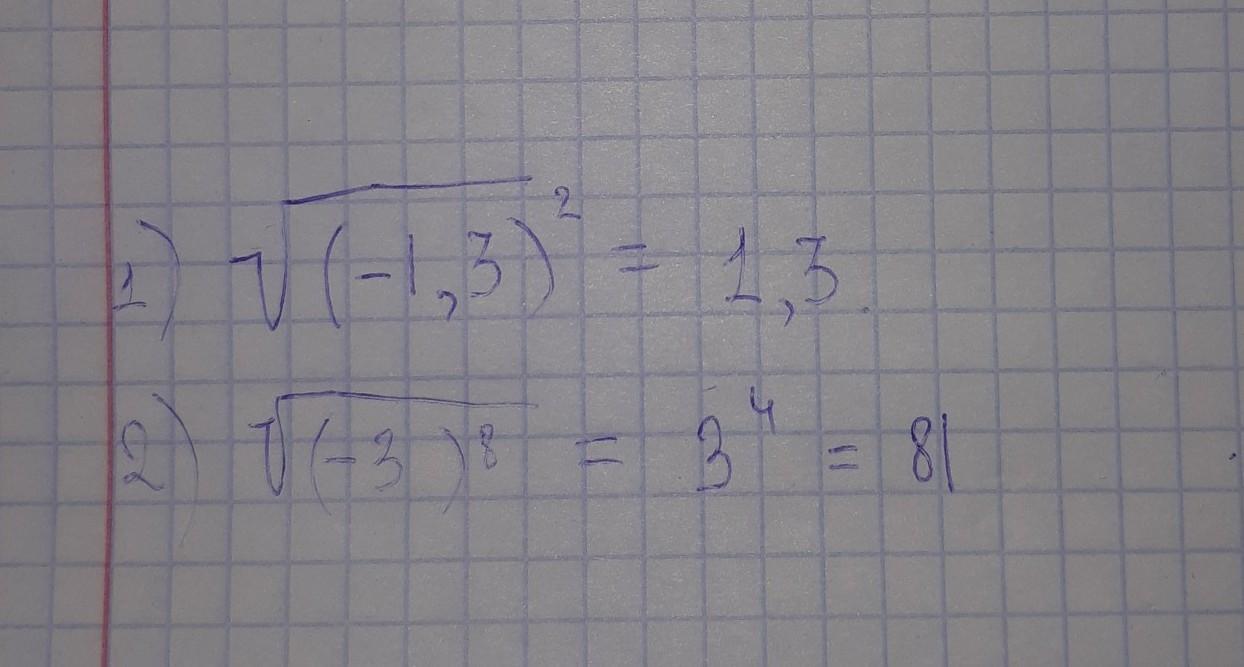 1) √(-1,3)² = 1,3.
2) √(-3)⁸ = 3⁴ = 81